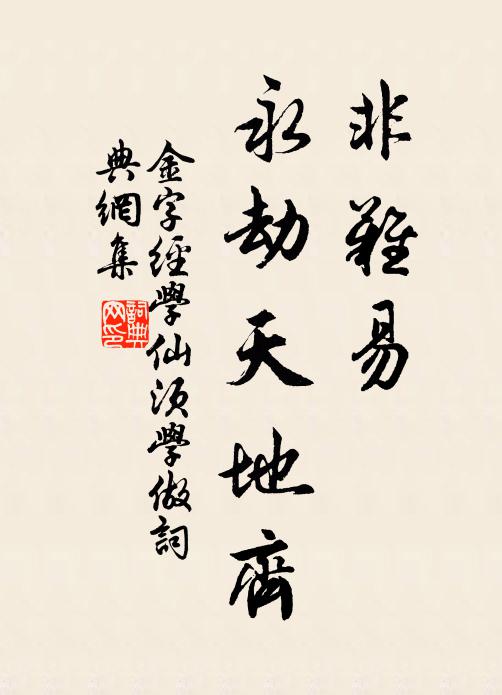 非難易
永劫天地齊
金字經學仙須學做詞
典網集
詞典
网印